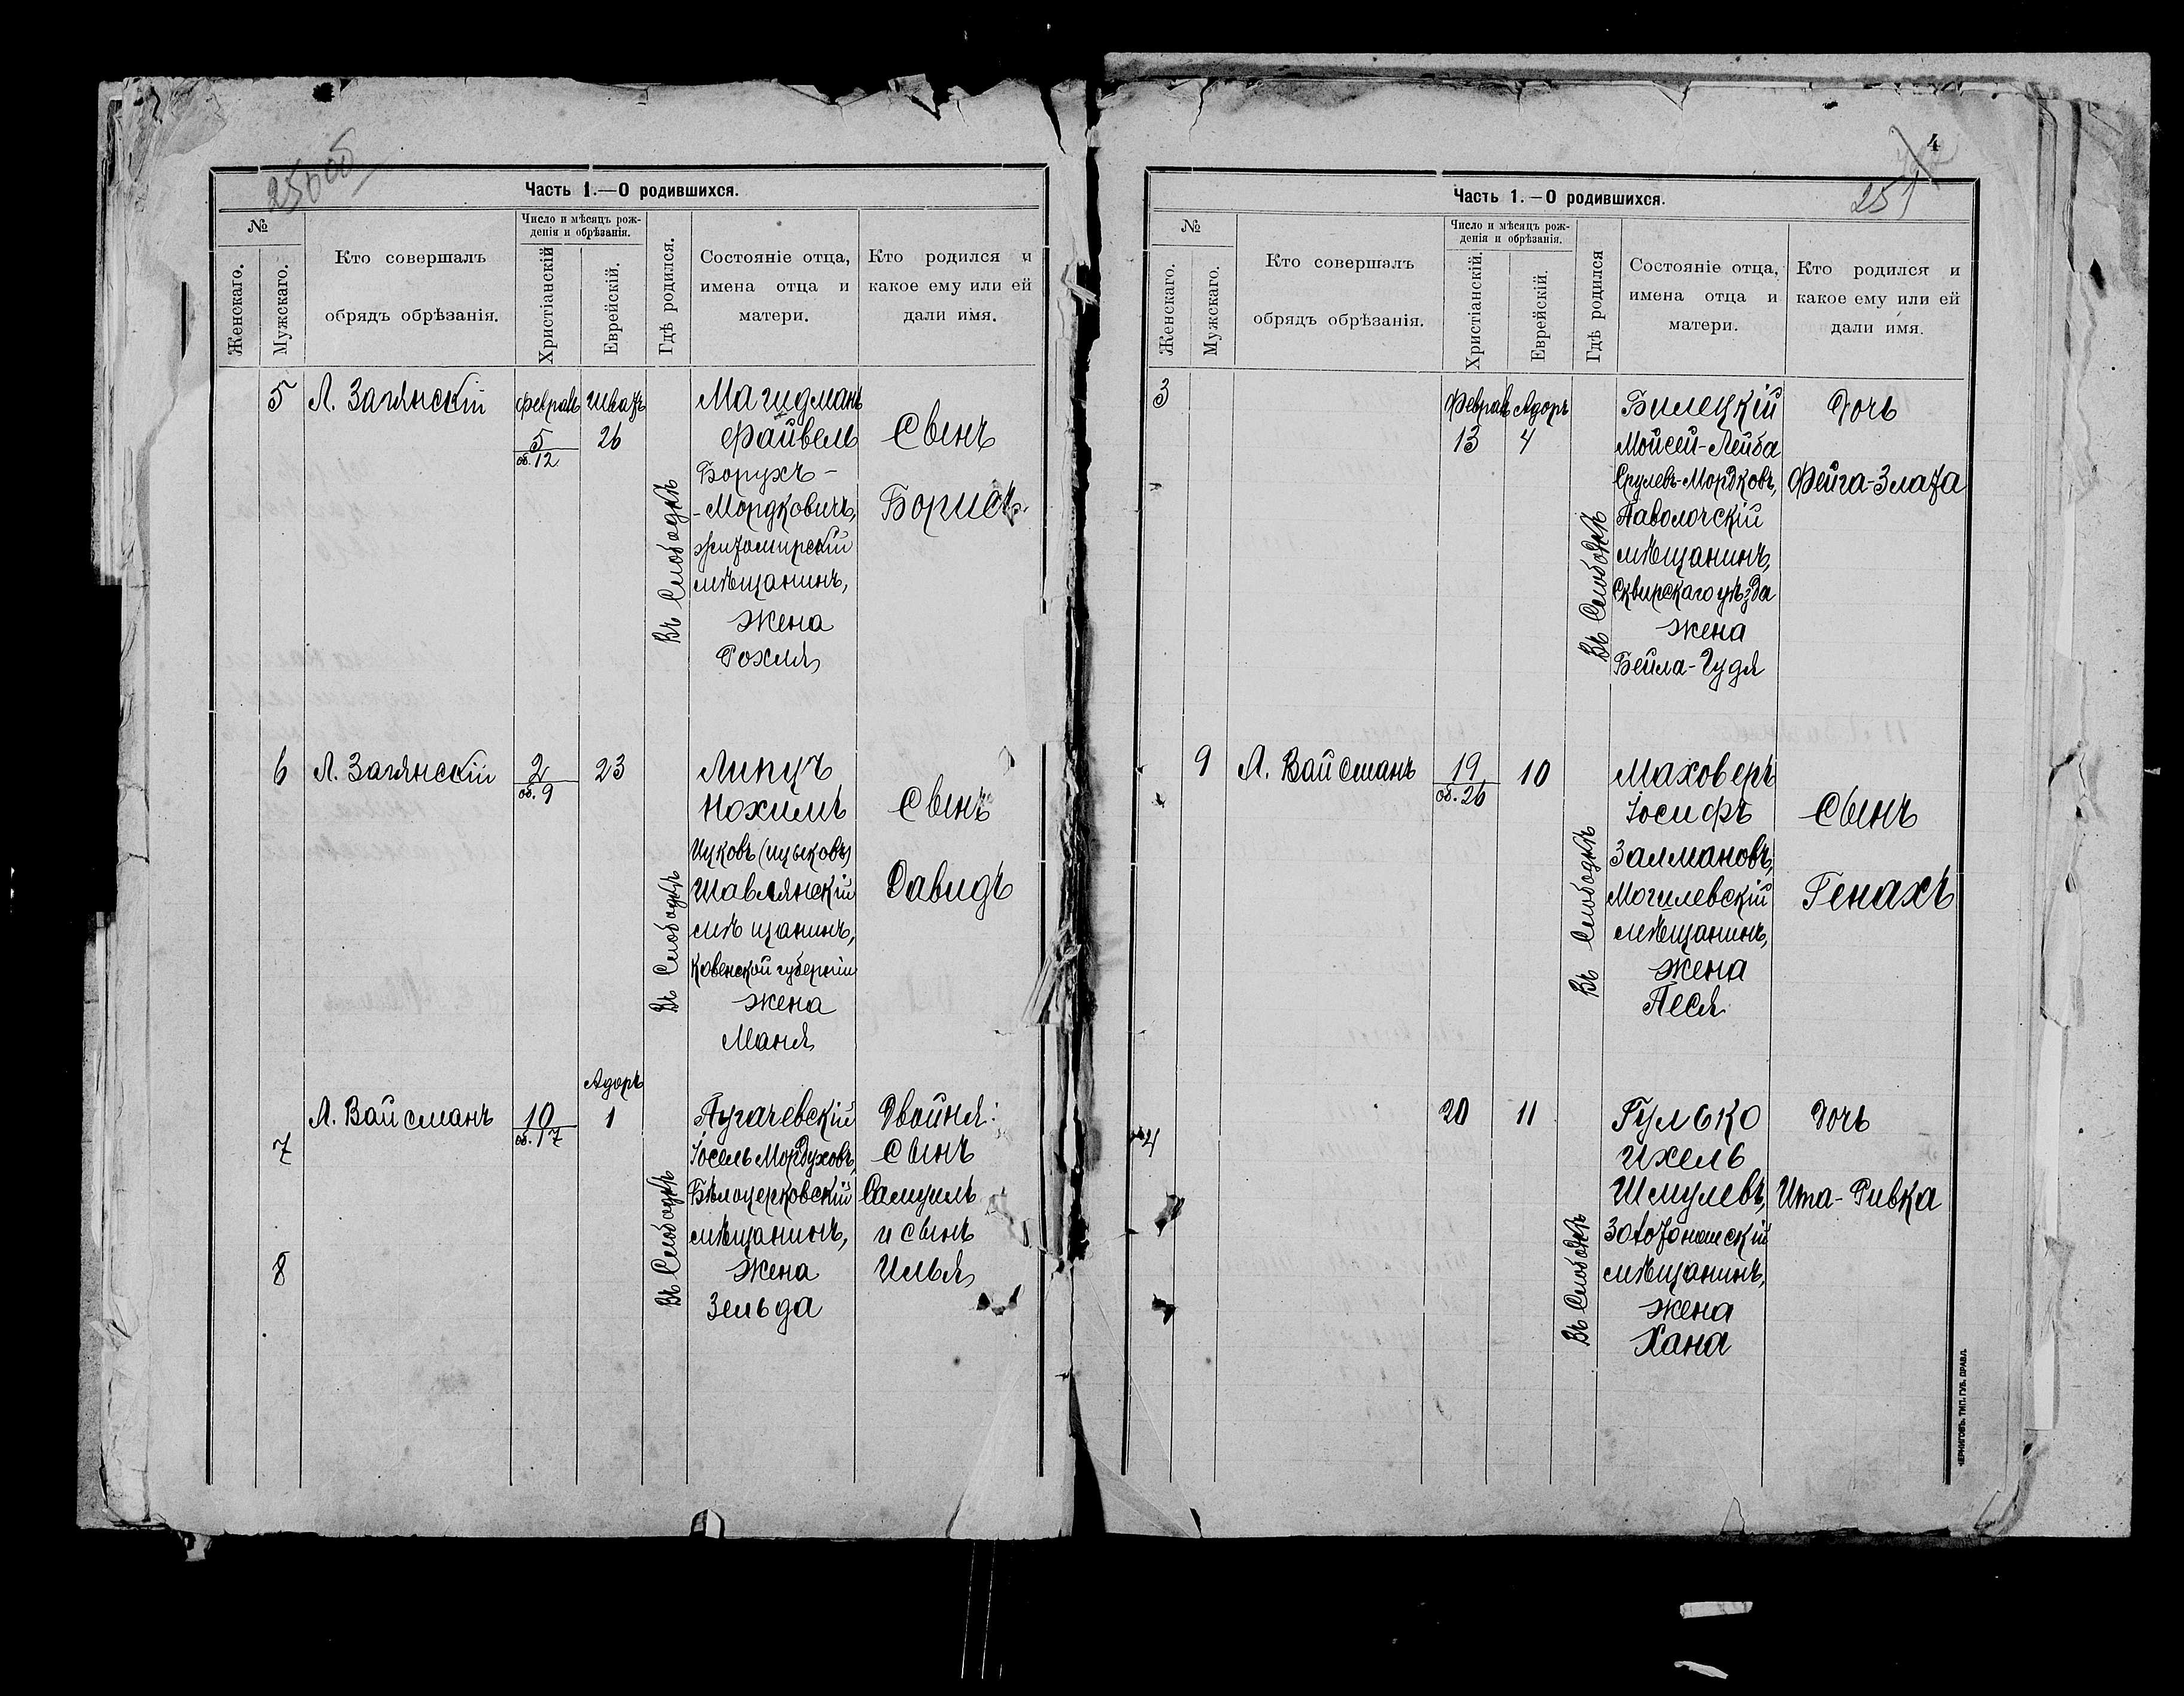 250 об
Часть 1.—О родившихся.
№
Женскаго.
Мужскаго.
Кто совершалъ
обрядъ обрѣзанія.
Число и мѣсяцъ рож-
денія и обрѣзанія.
Христіанскій
Еврейскій.
Гдѣ родился.
Состояніе отца,
имена отца и
матери.
Кто родился и
какое ему или ей
дали имя.
5 Л. Загянскій Феврал Шватъ Магидманъ
5 26 Файвель Сынъ
об. 12
Борухъ-
-Мордковичъ, Борисъ
житомирскій
мѣщанинъ,
жена
Рохля
Въ Слободкѣ
6 Л. Загянскій 2 23 Липуъ
об. 9
Нохимъ Сынъ
Ицковъ (Ицыковъ)
Шавлянскій Давидъ
мѣщанинъ,
Ковенской губерніи
жена
Маня
Въ Слободкѣ
Адоръ
Л. Вайсманъ 10 1 Пугачевскій Двойня:
об. 17
7 Іосель Мордуховъ, сынъ
Бѣлоцерковскій Самуилъ
мѣщанинъ, и сынъ
8 жена Илья
Зельда
Въ Слободкѣ
4
251
Часть 1.—О родившихся.
№
Женскаго.
Мужскаго.
Кто совершалъ
обрядъ обрѣзанія.
Число и мѣсяцъ рож-
денія и обрѣзанія.
Христіанскій.
Еврейскій.
Гдѣ родился
Состояніе отца,
имена отца и
матери.
Кто родился и
какое ему или ей
дали имя.
3 Феврал Адоръ Билецкій Дочь
13 4 Мойсей-Лейба
Срулевъ-Мордковъ, Фейга-Злата
Паволочскій
мѣщанинъ,
Сквирскаго уѣзда
жена
Бейла-Гудя
Въ Слободкѣ
9 Л. Вайсманъ 19 10 Маховеръ
об. 26
Іосифъ Сынъ
Залмановъ,
Могилевскій Генахъ
мѣщанинъ,
жена
Песя
Въ Слободкѣ
20 11 Гулько Дочь
4 Ихель
Шмулевъ, Ита-Ривка
Золотоношскій
мѣщанинъ,
жена
Хана
Въ Слободкѣ
ЧЕРНИГОВЪ. ТИП. ГУБ. ПРАВЛ.